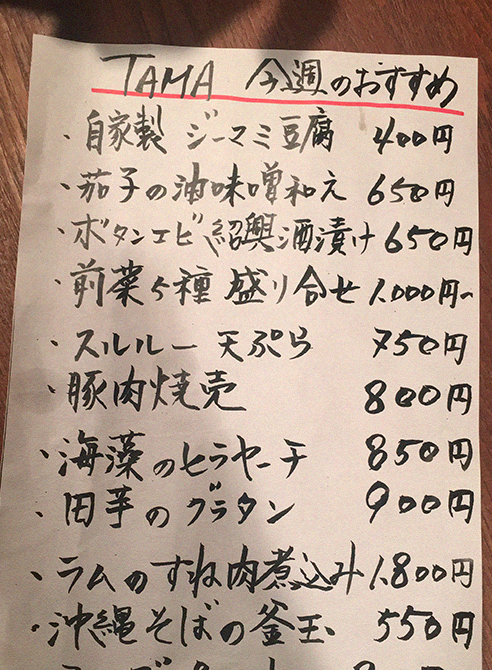 TAMA 今週のおすすめ
・自家製 ジーマミ豆腐 400円
・茄子の油味噌和え 650円
・ボタンエビ紹興酒漬け 650円
・前菜5種 盛り合せ 1,000円~
・スルルー天ぷら 750円
・豚肉焼売 800円
・海藻のヒラヤーチ 850円
・田芋のグラタン 900円
・ラムのすね肉煮込み 1,800円
・沖縄そばの釜玉 550円